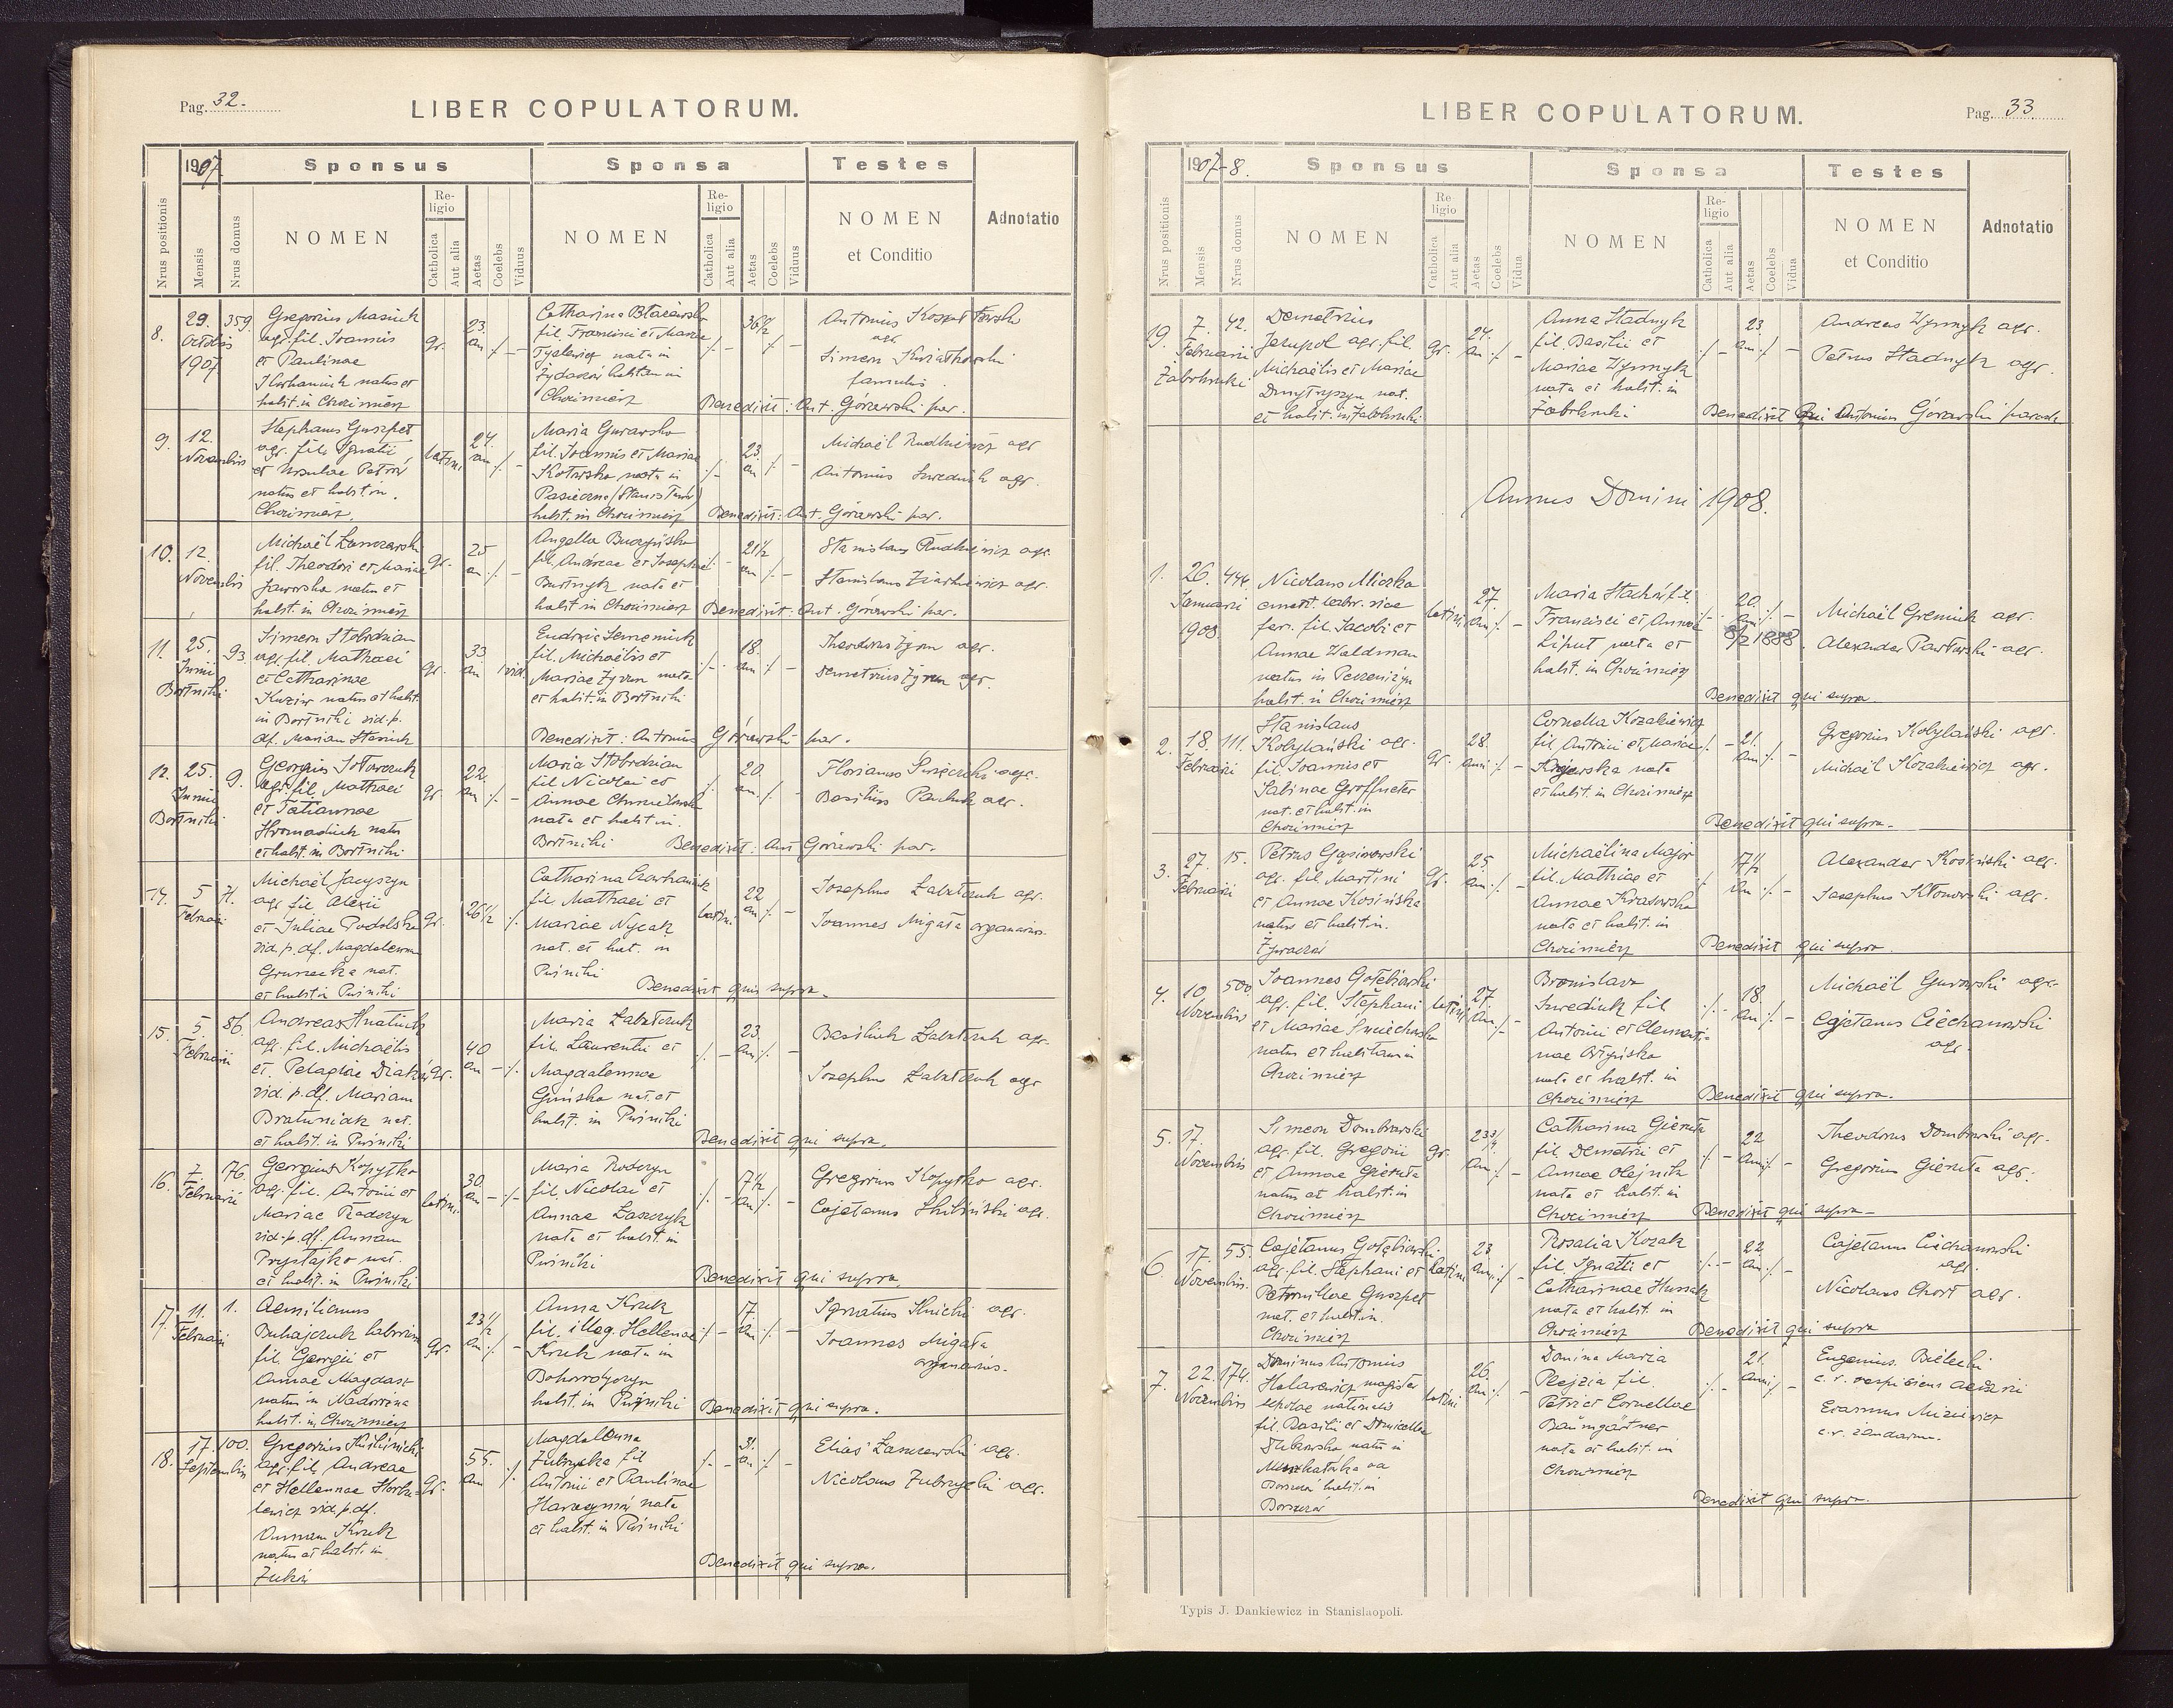 Pag. 32.
LIBER COPULATORUM.
1907
Sponsus
Sponsa
Testes
Nrus positionis
Mensis
Nrus domus
NOMEN
Religio
Catholica
Aut alia
Aetas
Coelebs
Viduus
NOMEN
Religio
Catholica
Aut alia
Aetas
Coelebs
Viduus
NOMEN
et Conditio
Adnotatio
8.
29. Octobris 1907
359.
Gregorius Masiuk
agr. fil. Joannis
et Paulinae
natus et
habit. in Chocimierz
gr.
23. an
Catharina
fil. Francisci et Mariae
nata in
Żydaczów habitan in
Chocimierz
36½
Antonius
agr
Simeon Kwiatkowski
famulus.
Benedixit: Ant. Górawski par.
9.
12. Novembris
Stephanus Guszpet
agr. fil. Ignatii
et Ursulae Petrów
natus et habit in.
Chocimierz.
latini
24. an
Maria Gurawska
fil. Joannis et Mariae
Kotarska nata in
Pasieczna (Stanisławów)
habit. in Chocimierz
23. an
Michaël Rudkiewicz agr
Antonius Swediuk agr.
Benedixit: Ant. Górawski par.
10.
12. Novembris
Michaël
fil. Theodori et Mariae
Jaworska natus et
habit. in Chocimierz
gr.
25 an.
Angella Buczyńska
fil. Andreae et Josephae
Burtnyk nata et
habit in Chocimierz
21½ an
Stanislaus Rudkiewicz agr.
Stanislaus Ziarkiewicz agr.
Benedixit: Ant. Górawski par.
11.
25. Junii
Bortniki
93.
Simeon Stobodzian
agr. fil. Mathaei
et Catharinae
natus et habit.
in Bortniki vid. p.
df. Mariam Stasiuk
gr.
33 an
1 vid.
Eudoxia Semeniuk
fil. Michaëlis et
Mariae Zyron nata
et habit. in Bortniki
18. an
Theodorus Zyron agr.
Demetrius Zyron agr.
Benedixit: Antonius Górawski par.
12.
25. Junii
Bortniki
9.
Georgius
agr. fil. Mathaei
et Tatiannae
Hromadiuk natus
et habit. in Bortniki
gr.
22. an
Maria Stobodzian
fil Nicolai et
Annae
nata et habit in.
Bortniki
20. an.
Florianus agr.
Basilius Pauluk agr.
Benedixit: Ant Górawski par.
14.
5 Februarii
71.
Michaël Jacyszyn
agr fil Alexii
et Juliae Podolska
vid. p. df. Magdalenam
nat.
et habit in Puźniki
gr.
26½
Catharina
fil Mathaei et
Mariae Nycak
nat. et hab. in
Puźniki
latini
22 an
Josephus agr.
Joannes Migała organarius.
Benedixit qui supra.
15.
5. Februarii
86.
Andreas Hnatiuk
agr. fil. Michaëlis
et. Pelagiae
vid. p. df. Mariam
Bratuniak nat.
et habit. in Puźniki
gr.
40 an
Maria
fil. Laurentii et
Magdalennae
nat. et
habit. in Puźniki
23. an
Basiliuk agr.
Josephus agr
Benedixit qui supra.
16.
7 Februarii
76.
Georgius Kopytko
agr. fil. Antonii et
Mariae Radczyn
vid. p. df. Annam
Prystajko nat.
et habit. in Puźniki
latini
30. an
Maria
fil. Nicolai et
Annae Łaszczyk
nata et habit. in
Puźniki
Gregorius Kopytko agr.
Cajetanus agr.
Benedixit qui supra.
17.
11. Februarii
1.
Aemilianus
Buhajczuk
fil. Georgii et
Annae
natus in Nadwórna
habit. in Chocimierz
gr.
23½ an
Anna Kruk
fil. illeg. Hellenae
Kruk nata in
Bohorodyczyn
habit. in Puźniki
17. an
Ignatius agr.
Joannes Migała
organarius.
Benedixit qui supra.
18.
17. Septembris
100.
Gregorius
agr. fil. Andreae
et Hellennae
vid. p. df.
Annam Kruk
natus et habit. in
Żuków
gr.
55. an
Magdalenna
Zubrycka fil
Antonii et Paulinae
nata
et habit. in Puźniki
31. an
Elias Łaszewski agr.
Nicolaus Zubrycki agr.
Benedixit qui supra.
Pag. 33
LIBER COPULATORUM.
1907-8.
Sponsus
Sponsa
Testes
Nrus positionis
Mensis
Nrus domus
NOMEN
Religio
Catholica
Aut alia
Aetas
Coelebs
Vidua
NOMEN
Religio
Catholica
Aut alia
Aetas
Coelebs
Vidua
NOMEN
et Conditio
Adnotatio
19.
7. Februarii
Żabokruki
42.
Demetrius
Jezupol agr. fil.
Michaëlis et Mariae
Dmytryszyn nat.
et habit. in Żabokruki
gr.
24. an
Anna Stadnyk
fil. Basilii et
Mariae Wynnyk
nata et habit. in
Żabokruki
23. an
Andreas Wynnyk agr.
Petrus Stadnyk agr.
Benedixit qui Antonius Górawski paroch.
Annus Domini 1908.
1.
26. Januarii 1908
444
Nicolaus Miczka
fil. Jacobi et
Annae Waldman
natus in Peczeniżyn
habit. in Chocimierz
latini
27. an
Maria Stachów fil.
Francisci et Annae
Liput nata et
habit. in Chocimierz
20. an
8/2 1888.
Michaël Greniuk agr.
Alexander Pawłowski agr.
Benedixit qui supra.
2.
18. Februarii
111.
Stanislaus
Kobylański agr.
fil. Joannis et
Sabinae
nat. et habit. in
Chocimierz
gr.
28. anni
Cornelia Kozakiewicz
fil. Antonii et Mariae
Krajewska nata
et habit. in Chocimierz
21. an
Gregorius Kobylański agr.
Michaël Kozakiewicz agr.
Benedixit qui supra.
3.
27. Februarii
15.
Petrus Gąsiorowski
agr. fil Martini
et Annae Kosińska
natus et habit. in.
Żywaczów
gr.
25. an
Michaëlina Major
fil. Mathiae et
Annae Krasowska
nata et habit. in
Chocimierz
17½ an
Alexander Kosiński agr.
Josephus Kłonowski agr.
Benedixit qui supra.
4.
10 Novembris
500
Joannes Gołębiowski
agr. fil. Stephani
et Mariae
natus et habitan in
Chocimierz
latini
27. an
Bronislava
Swediuk fil
Antonii et Clementinae
nata et habit. in
Chocimierz
18. an
Michaël Gurawski agr.
Cajetanus Ciechanowski
agr.
Benedixit qui supra.
5.
17. Novembris
Simeon Dombrowski
agr. fil. Gregorii
et Annae Gieruta
natus et habit. in
Chocimierz
gr.
23¾ an
Catharina Gieruta
fil Demetrii et
Annae Olejnik
nata et habit. in
Chocimierz
22 an
Theodorus Dombrowski agr.
Gregorius Gieruta agr.
Benedixit qui supra.
6
17. Novembris.
55.
Cajetanus Gołębiowski
agr. fil. Stephani et
Petronillae Guszpet
nat. et habit. in.
Chocimierz
latini
23. an
Rosalia Kozak
fil. Ignatii et
Catharinae Hussak
nata et habit. in
Chocimierz
22. an
Cajetanus Ciechanowski
agr.
Nicolaus Chort agr.
Benedixit qui supra
7.
22. Novembris
174.
Dominus Antonius
Holarewicz magister
scholae nationalis
fil. Basilii et Domicellae
natus in
habit. in
Borszczów
latini
26. an
Domina Maria
Plejzia fil.
Petri et Corneliae
Baumgärtner
nata et habit. in
Chocimierz
21. anni
Eugenius Bielecki
c. r. respiciens aerarii
Erasmus
c. r. żandarm.
Benedixit qui supra.
Typis J. Dankiewicz in Stanislaopoli.